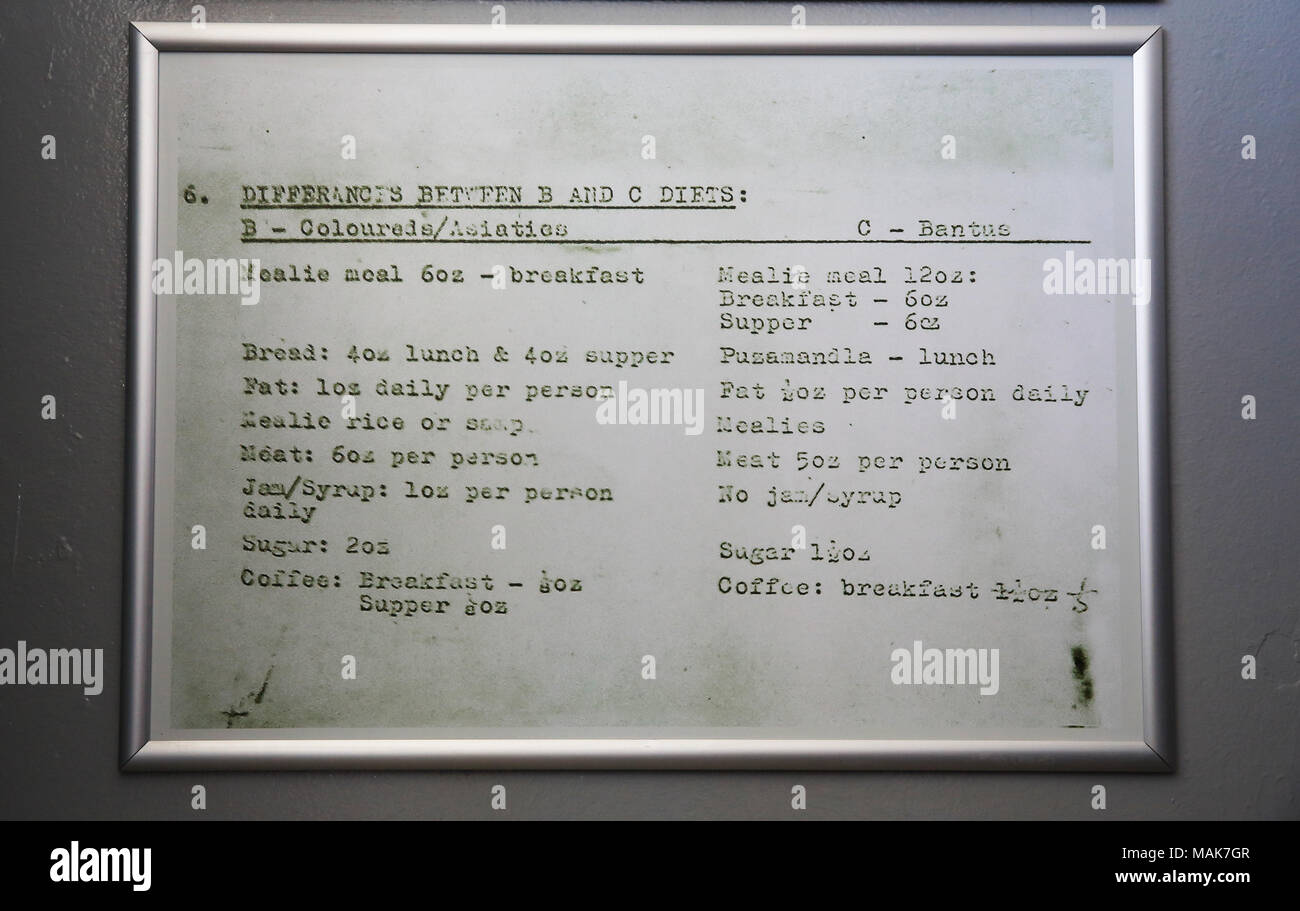 6. DIFFERANCES BETWEEN B AND C DIETS:
B - Coloureds/Asiatics C - Bantus
Mealie meal 6oz - breakfast Mealie meal 12oz:
Breakfast - 6oz
Supper - 6oz
Bread: 4oz lunch & 4oz supper Puzamandla - lunch
Fat: 1oz daily per person Fat ½oz per person daily
Mealie rice or samp. Mealies
Meat: 6oz per person Meat 5oz per person
Jam/Syrup: 1oz per person No jam/syrup
daily
Sugar: 2oz Sugar 1½oz
Coffee: Breakfast - oz Coffee: breakfast 1½oz
Supper oz
alamy
a
alamy
Image ID: MAK7GR
www.alamy.com